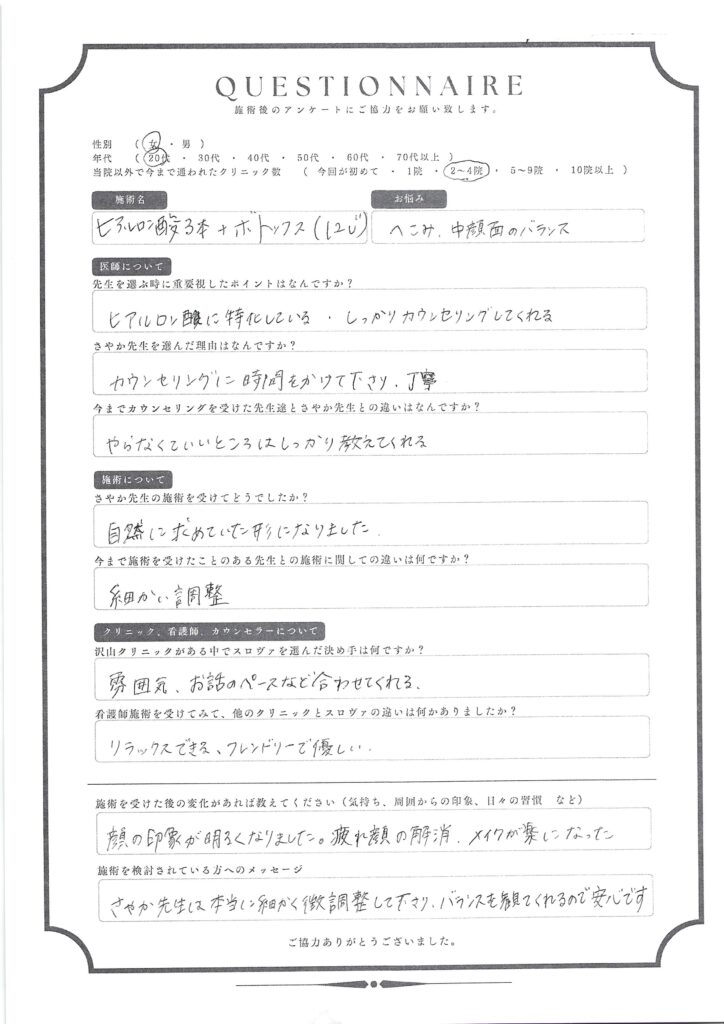 QUESTIONNAIRE
施術後のアンケートにご協力をお願い致します。
性別 （ 女 ・ 男 ）
年代 （ 20代 ・ 30代 ・ 40代 ・ 50代 ・ 60代 ・ 70代以上 ）
当院以外で今まで通われたクリニック数 （ 今回が初めて ・ 1院 ・ 2〜4院 ・ 5〜9院 ・ 10院以上 ）
施術名 お悩み
ヒアルロン酸3本 + ボトックス (12U) へこみ、中顔面のバランス
医師について
先生を選ぶ時に重要視したポイントはなんですか？
ヒアルロン酸に特化している ・ しっかりカウンセリングしてくれる
さやか先生を選んだ理由はなんですか？
カウンセリングに時間をかけて下さり、丁寧
今までカウンセリングを受けた先生達とさやか先生との違いはなんですか？
やらなくていいところはしっかり教えてくれる
施術について
さやか先生の施術を受けてどうでしたか？
自然に求めていた形になりました.
今まで施術を受けたことのある先生との施術に関しての違いは何ですか？
細かい調整
クリニック、看護師、カウンセラーについて
沢山クリニックがある中でスロヴァを選んだ決め手は何ですか？
雰囲気、お話のペースなど合わせてくれる、
看護師施術を受けてみて、他のクリニックとスロヴァの違いは何かありましたか？
リラックスできる、フレンドリーで優しい.
施術を受けた後の変化があれば教えてください（気持ち、周囲からの印象、日々の習慣 など）
顔の印象が明るくなりました。疲れ顔の解消、メイクが楽になった
施術を検討されている方へのメッセージ
さやか先生は本当に細かく微調整して下さり、バランスも観てくれるので安心です
ご協力ありがとうございました。